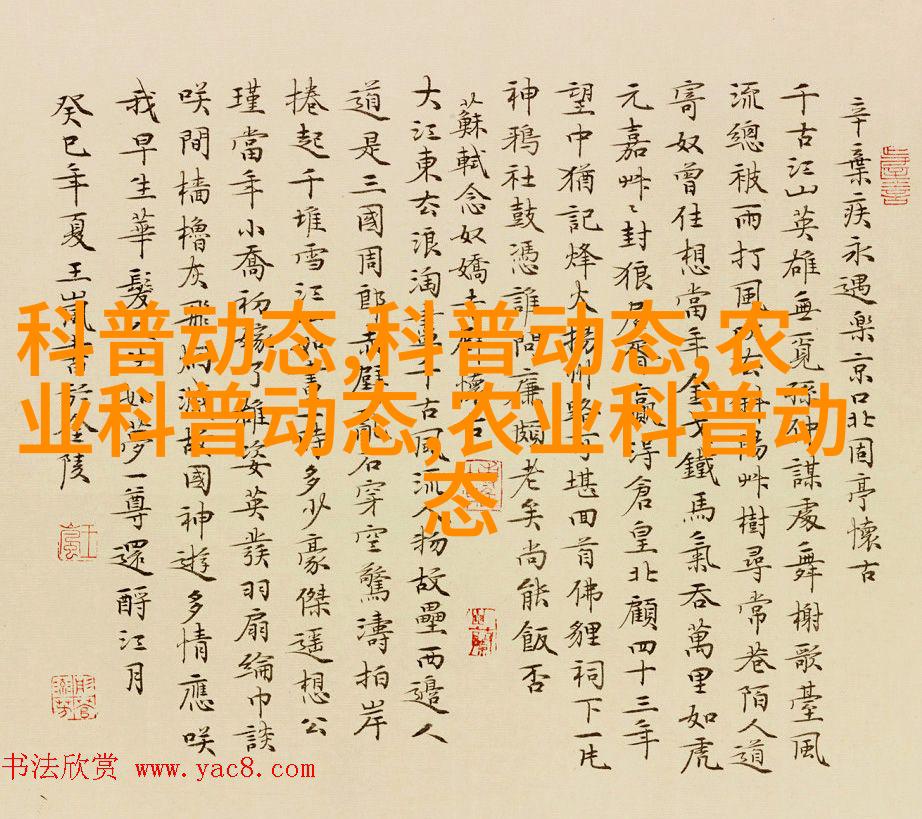 辛棄疾永遇樂京口北固亭懷古
千古江山英雄無覓孫仲謀處舞榭歌臺風
流總被雨打風去斜陽艸樹尋常巷陌人道
寄奴曾住想當年金戈鐵馬氣吞萬里如虎
元嘉艸〻封狼居胥贏得倉皇北顧四十三年
望中猶記烽火揚州路可堪回首佛貍祠下一片
神鴉社鼓憑誰問廉頗老矣尚能飯否
蘇軾念奴嬌赤壁懷古
大江東去浪淘盡千古風流人物故壘西邊人
道是三國周郎赤壁亂石穿空驚濤拍岸
捲起千堆雪江山如畫一時多少豪傑遥想公
瑾當年小喬初嫁了雄姿英發羽扇綸巾談
咲間檣櫓灰飛烟滅故國神遊多情應咲
我早生華髮人生如夢一尊還酹江月
癸巳年夏王嵐書於金陵
科普动态,科普动态,农
业科普动态,农业科普动
态
书法欣赏 www.yac8.com